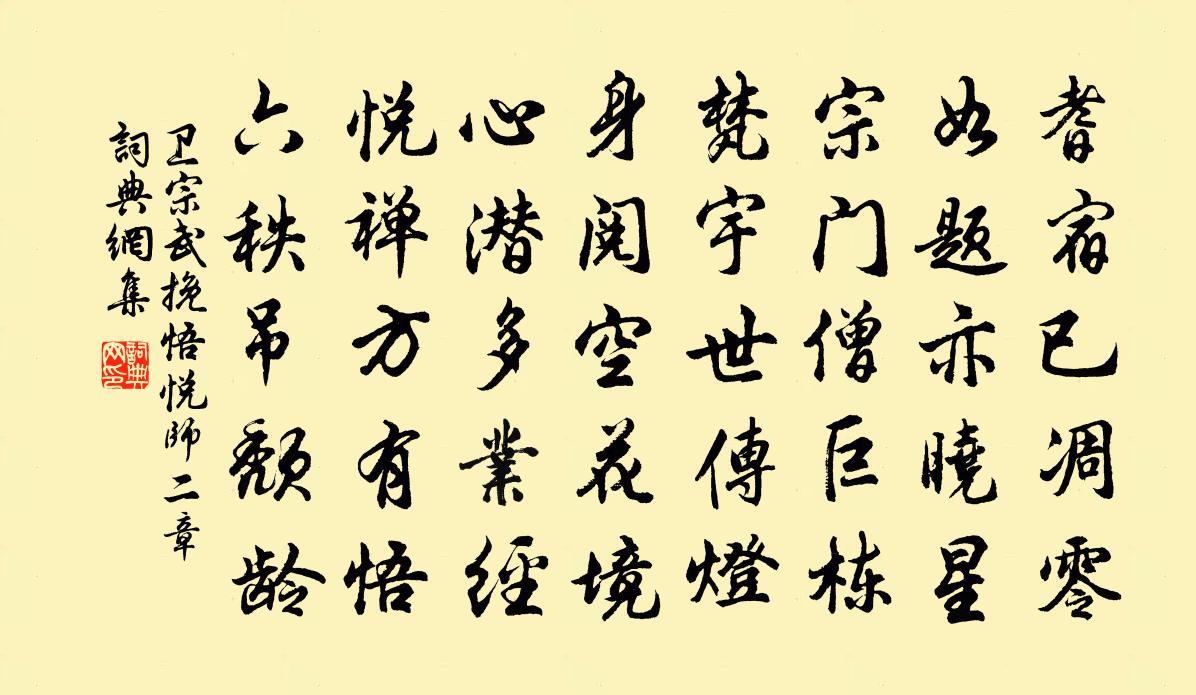 耆宿已凋零
如题亦曉星
宗门僧巨栋
梵宇世傳燈
身阅空花境
心潜多業經
悦禅方有悟
六秩吊颓龄
卫宗武挽悟悦師二章
詞典網集
詞典网印